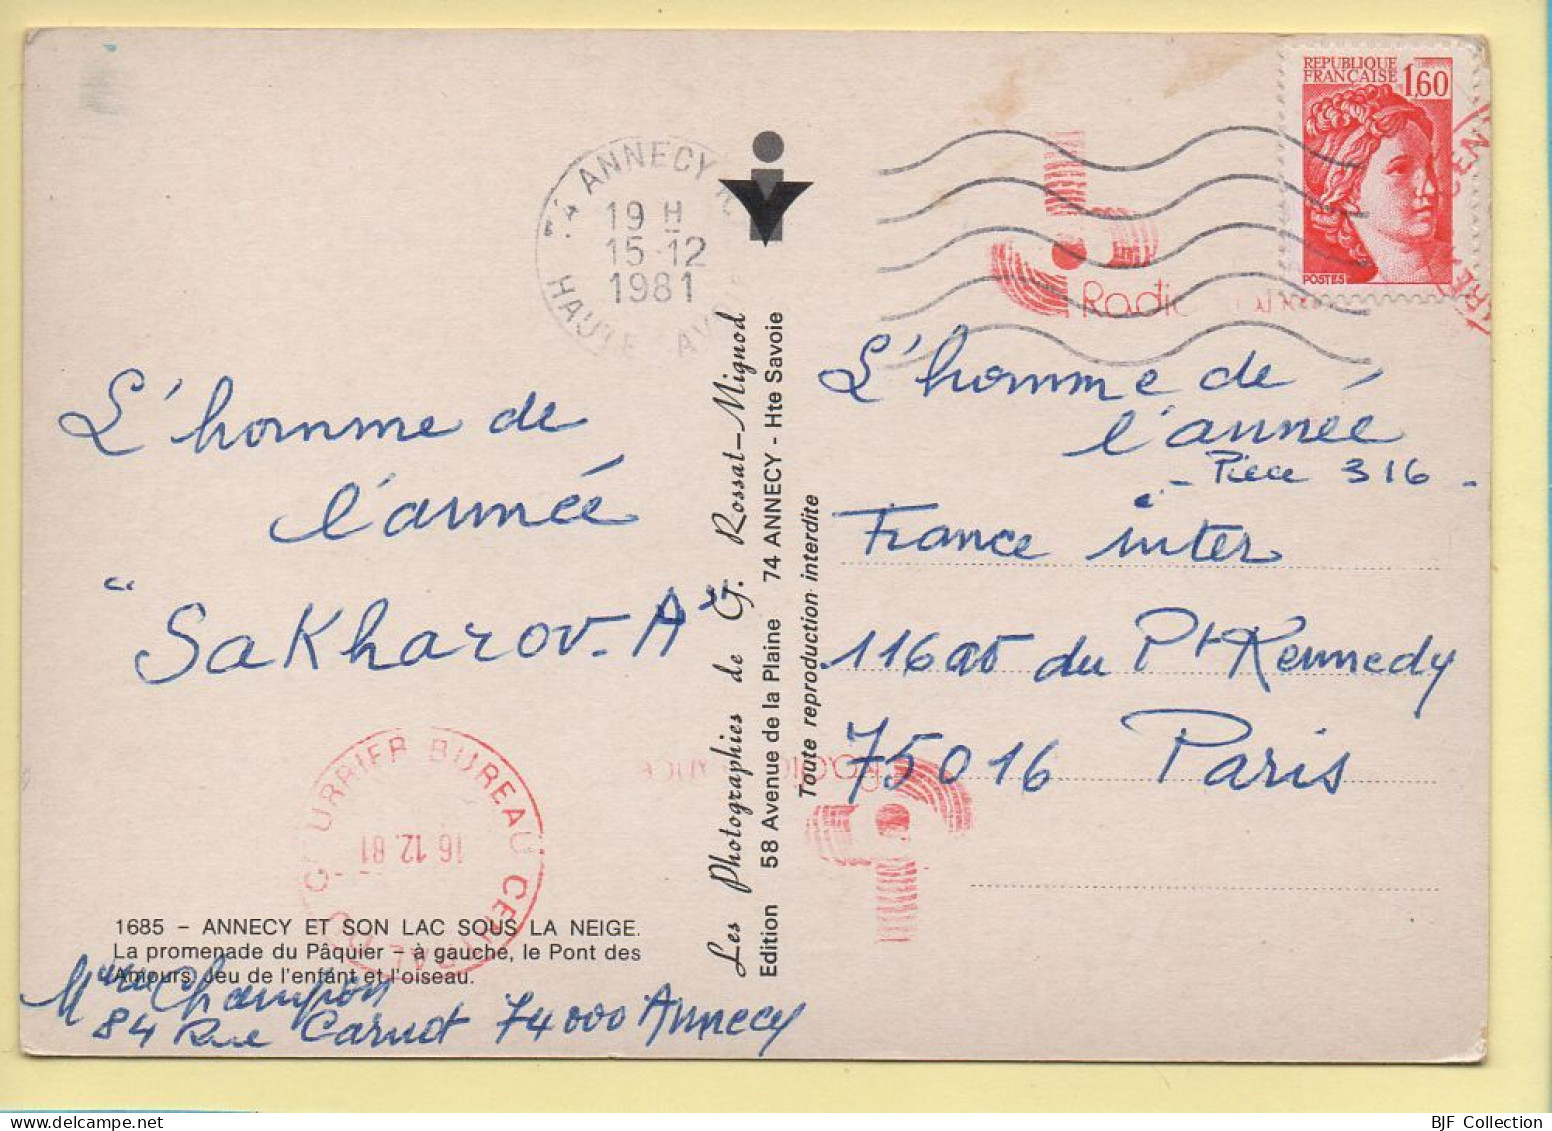 L'homme de
l'année
"SaKharov.A"
1685 – ANNECY ET SON LAC SOUS LA NEIGE.
La promenade du Pâquier – à gauche, le Pont des
Amours. Jeu de l'enfant et l'oiseau.
Champion
84 Rue Carnot 74000 Annecy
ANNECY
19 H
15-12
1981
COURRIER BUREAU CENTRAL
16.12.81
Les Photographies de G. Rossat-Mignod
Edition 58 Avenue de la Plaine 74 ANNECY - Hte Savoie
Toute reproduction interdite
REPUBLIQUE
FRANÇAISE
1,60
POSTES
L'homme de
l'année
- Pièce 316 -
France inter
116 du Pt Kennedy
75016 Paris
BJF Collection